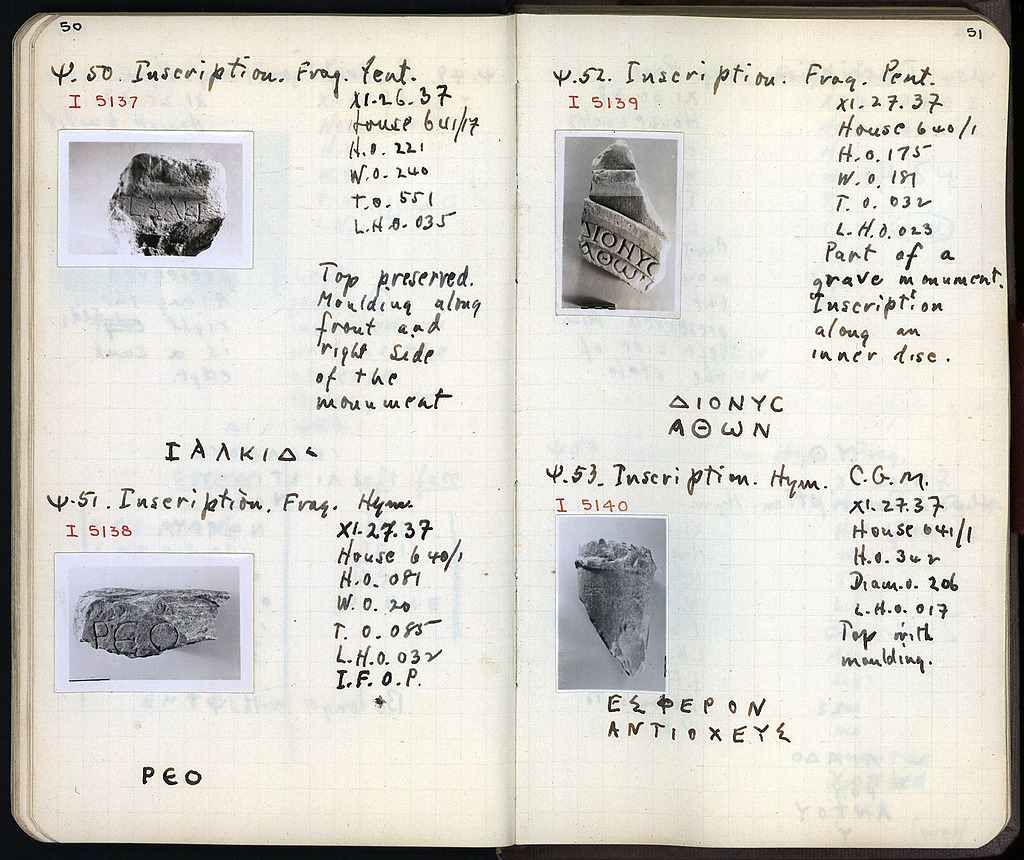 50
Ψ.50. Inscription. Frag. Pent.
I 5137
XI.26.37
House 641/17
H.0.221
W.0.240
T.0.551
L.H.0.035
ΙΑΛΚ
Top preserved.
Moulding along
front and
right side
of the
monument
ΙΑΛΚΙΔ
Ψ.51. Inscription. Frag. Hym.
I 5138
XI.27.37
House 640/1
H.0.081
W.0.20
T.0.085
L.H.0.032
I.F.O.P.
ΡЄΟ
ΡЄΟ
51
Ψ.52. Inscription. Frag. Pent.
I 5139
XI.27.37
House 640/1
H.0.175
W.0.181
T.0.032
L.H.0.023
Part of a
grave monument.
Inscription
along an
inner disc.
ΔΙΟΝΥC
ΑΘωΝ
ΔΙΟΝΥC
ΑΘωΝ
Ψ.53. Inscription. Hym. C.G.M.
I 5140
XI.27.37
House 641/1
H.0.342
Diam.0.206
L.H.0.017
Top with
moulding.
ΕΣΦΕΡΟΝ
ΑΝΤΙΟΧΕΥΣ